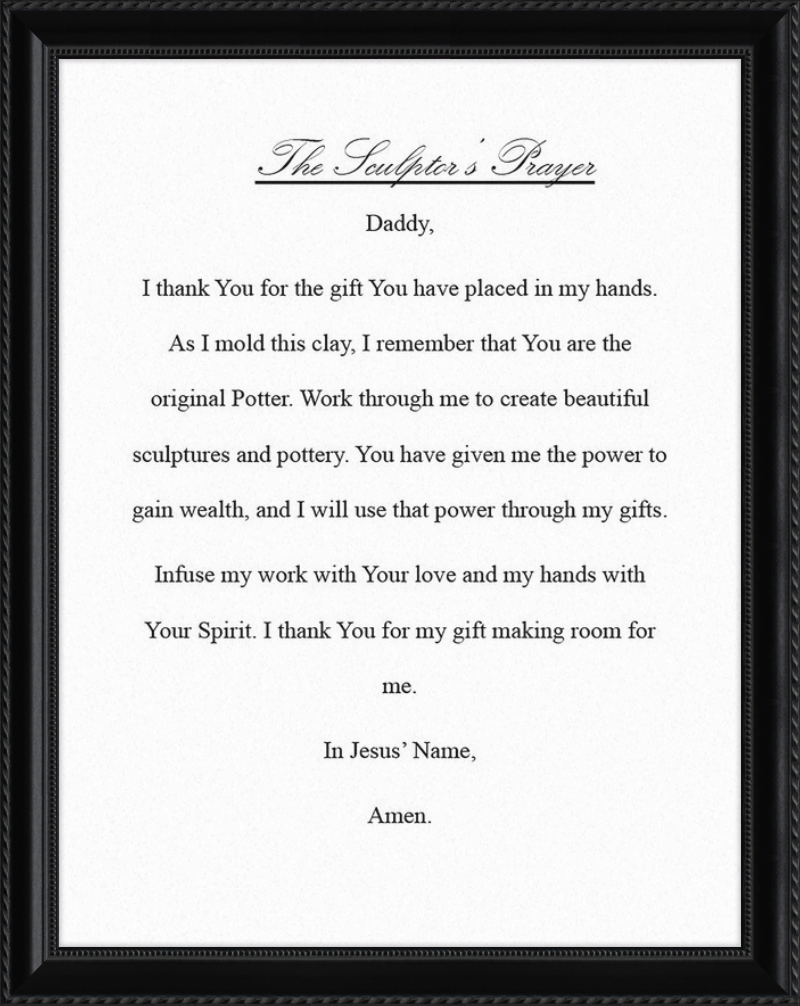 The Sculptor's Prayer
Daddy,
I thank You for the gift You have placed in my hands.
As I mold this clay, I remember that You are the
original Potter. Work through me to create beautiful
sculptures and pottery. You have given me the power to
gain wealth, and I will use that power through my gifts.
Infuse my work with Your love and my hands with
Your Spirit. I thank You for my gift making room for
me.
In Jesus’ Name,
Amen.